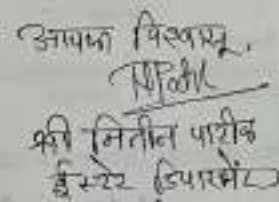 आपका विश्वासू,
श्री नितीन पारीक
ईस्टेट डिपार्टमेंट